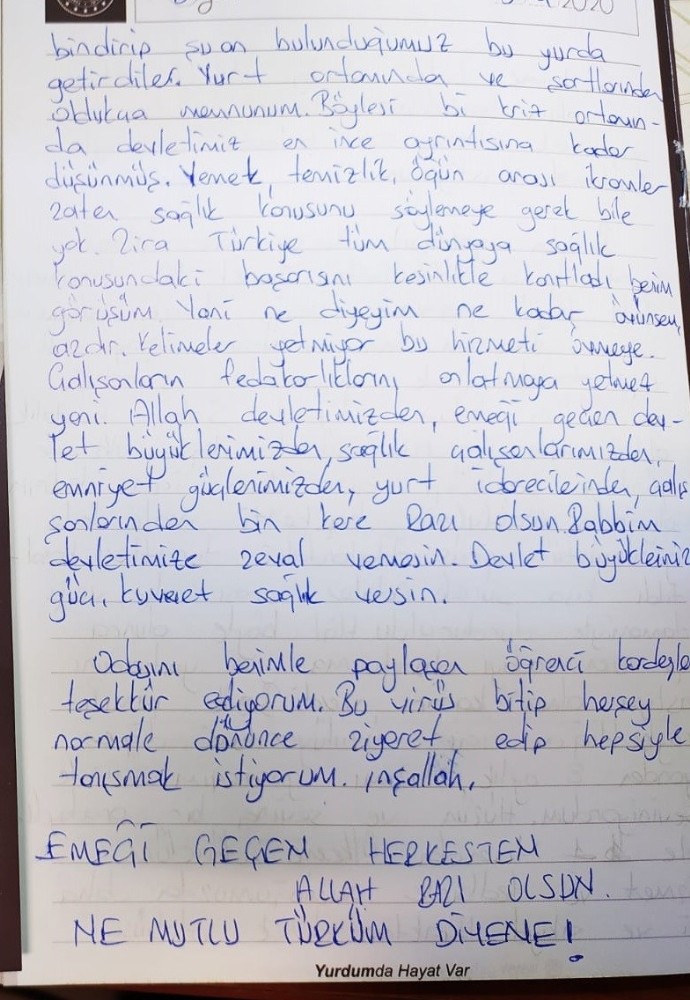 2020
bindirip şu an bulunduğumuz bu yurda
getirdiler. Yurt ortamında ve şartlarından
oldukça memnunum. Böylesi bi kriz ortamın-
da devletimiz en ince ayrıntısına kadar
düşünmüş. Yemek, temizlik, öğün arası ikramlar
zaten sağlık konusunu söylemeye gerek bile
yok. Zira Türkiye tüm dünyaya sağlık
konusundaki başarısını kesinlikle kanıtladı benim
görüşüm. Yani ne diyeyim ne kadar övünsem
azdır. Kelimeler yetmiyor bu hizmeti övmeye.
Çalışanların fedakarlıklarını anlatmaya yetmez
yani. Allah devletimizden, emeği geçen dev-
let büyüklerimizden, sağlık çalışanlarımızden,
emniyet güçlerimizden, yurt idarecilerinden, çalış
şanlarından bin kere Razı olsun. Rabbim
devletimize zeval vermesin. Devlet büyüklerimiz
güç, kuvvet sağlık versin.
Odasını benimle paylaşan öğrenci kardeşle
teşekkür ediyorum. Bu virüs bitip herşey
normale dönünce ziyaret edip hepsiyle
tanışmak istiyorum. inşallah.
EMEĞİ GEÇEN HERKESTEN
ALLAH RAZI OLSUN.
NE MUTLU TÜRKÜM DİYENE!
Yurdumda Hayat Var